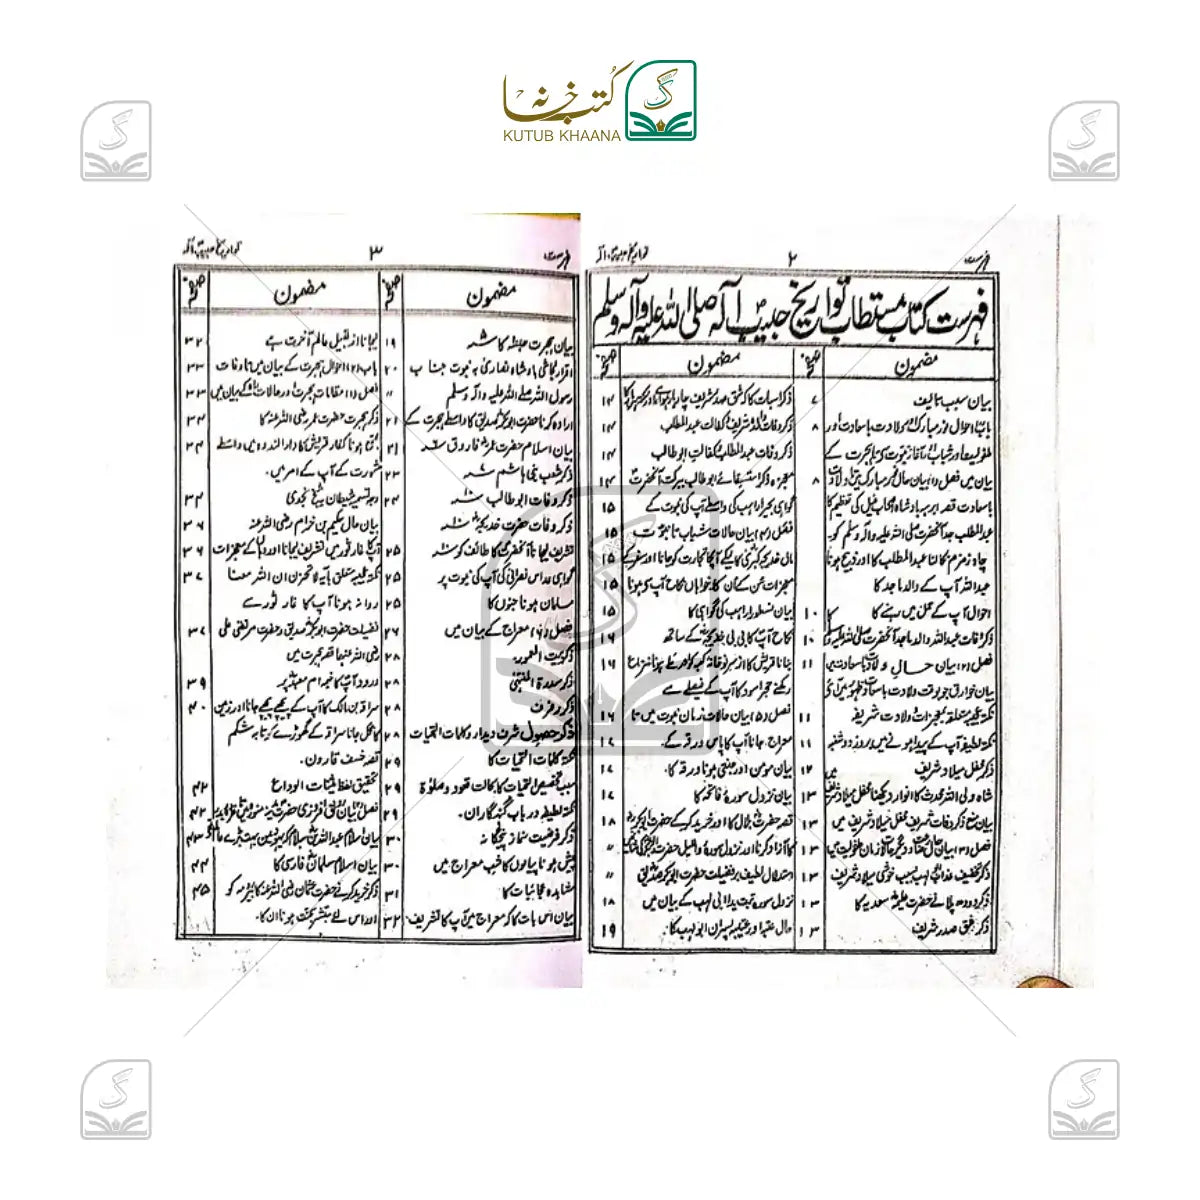 کتب خانہ
KUTUB KHAANA
فہرست
۲
تواریخ حبیب الہ
فہرست کتاب مستطاب تواریخ حبیب الہ صلی اللہ علیہ وآلہ وسلم
مضمون
صفحہ
مضمون
صفحہ
بیان سبب تالیف ۷
باب احوال نور مبارک و ولادت باسعادت اور ۸
بیان میں فصل (۱) بیان حال نور مبارک میں ۸
باسعادت قصہ ابرہہ بادشاہ اصحاب فیل کی تعظیم کا
عبدالمطلب جد آنحضرت صلی اللہ علیہ وسلم کو۔
چاہ زمزم کا نکالنا عبدالمطلب کا اور ذبیح ہونا
عبداللہ آپ کے والد ماجد کا
احوال آپ کے حمل میں رہنے کا ۱۰
ذکر وفات عبداللہ والد ماجد آنحضرت صلی اللہ علیہ وسلم ۱۰
فصل (۲) بیان حال ولادت باسعادت میں ۱۱
بیان خوارق جو بوقت ولادت باسعادت ظہور میں آئی
نکتہ لطیفہ متعلقہ بمعجزات ولادت شریفہ ۱۱
نکتہ لطیفہ آپ کے پیدا ہونے میں روز دوشنبہ ۱۱
ذکر محفل میلاد شریف ۱۲
شاہ ولی اللہ محدث کا انوار دیکھنا محفل میلاد شریف میں ۱۳
بیان منع ذکر وفات شریف محفل میلاد شریف میں ۱۳
فصل (۳) بیان ۱۳
ذکر تخفیف عذاب ابولہب بسبب خوشی میلاد شریف ۱۳
ذکر دودھ پلانے حضرت حلیمہ سعدیہ کا ۱۳
ذکر شق صدر شریف ۱۳
ذکر اس بات کا کہ شق صدر شریف چار بار ہوا ۱۴
ذکر وفات والدہ شریفہ و کفالت عبدالمطلب ۱۴
ذکر وفات عبدالمطلب و کفالت ابوطالب ۱۴
معجزہ ذکر استسقائے ابوطالب ببرکت آنحضرت ۱۴
گواہی بحیرا راہب کی واسطے آپ کی نبوت کے ۱۵
فصل (۴) بیان حالات شباب تا نبوت ۱۵
مال خدیجہ کبری کا لیکے آپکا تجارت کو جانا اور سفر کے ۱۵
معجزات سن کے ان کا خواہاں نکاح آپ کو ہونا ۱۵
بیان نسطورا راہب کی گواہی کا ۱۵
نکاح آپ کا بی بی خدیجہ کے ساتھ ۱۶
بنانا قریش کا از سر نو خانہ کعبہ کو اور طے ہونا نزاع ۱۶
رکھنے حجر اسود کا آپ کے فیصلے سے
فصل (۵) بیان حالات زمان نبوت میں تا ۱۶
معراج، جانا آپ کا پاس ورقہ کے۔ ۱۷
بیان مومن اور جنتی ہونا ورقہ کا۔ ۱۷
بیان نزول سورۂ فاتحہ کا ۱۷
قصہ حضرت بلال کا اور خرید کر کے حضرت ابوبکر ۱۸
کا آزاد کرنا اور نزول سورہ واللیل حضرت ابوبکر کی شان میں ״
استدلال لطیف بر فضیلت حضرت ابوبکر صدیق ״
نزول سورہ تبت یدا ابی لہب کے بیان میں ۱۸
حال عتبہ اور عتیبہ پسران ابولہب کا۔ ۱۹
فہرست
۳
تواریخ حبیب الہ
مضمون
صفحہ
مضمون
صفحہ
بیان ہجرت حبشہ کا ۱۹
اقرار نجاشی بادشاہ نصاری بہ نبوت جناب ۲۰
رسول اللہ صلے اللہ علیہ وآلہ وسلم ״
ارادہ کرنا حضرت ابوبکر صدیق کا واسطے ہجرت کے ۲۱
بیان اسلام حضرت عمر فاروق ۲۱
ذکر شعب بنی ہاشم ۲۳
ذکر وفات ابوطالب ۲۴
ذکر وفات حضرت خدیجہ
تشریف لیجانا آنحضرت کا طائف کو ۲۵
گواہی عداس نصرانی کی آپ کی نبوت پر ۲۵
مسلمان ہونا جنوں کا ۲۵
فصل (۶) معراج کے بیان میں ۲۶
ذکر بیت المعمور ۲۸
ذکر سدرۃ المنتہیٰ ۲۸
ذکر رفرف ۲۸
ذکر حصول شرف دیدار و کلمات التحیات ۲۸
نکتہ کلمات التحیات کا ۲۹
سبب تخصیص التحیات کا بحالت قعود و صلوٰۃ ۲۹
نکتہ لطیفہ درباب گنہگاران۔ ۲۹
ذکر فرضیت نماز پنجگانہ ۳۰
پیش ہونا پیالوں کا شب معراج میں ۳۰
مشاہدہ عجائبات کا ۳۱
بیان اس بات کا کہ معراج میں آپ کا تشریف ۳۲
لیجانا از قبیل عالم آخرت ہے ۳۲
باب (۲) احوال ہجرت کے بیان میں تا وفات ۳۳
فصل (۱) مقدمات ہجرت و حالات کے بیان میں ۳۳
ذکر ہجرت حضرت عمر رضی اللہ عنہ کا ۳۴
جمع ہونا کفار قریش کا دارالندوہ میں واسطے ۳۴
مشورت کے آپ کے امر میں۔
وجہ تسمیہ شیطان بہ شیخ نجدی ۳۴
بیان حال حکیم بن حزام رضی اللہ عنہ ۳۶
آپ کا غار ثور میں تشریف لیجانا اور وہاں کے معجزات ۳۶
نکتہ عجیبہ متعلق بآیہ لا تحزن ان اللہ معنا ۳۷
روانہ ہونا آپ کا غار ثور سے
فضیلت حضرت ابوبکر صدیق و حضرت مرتضی علی ۳۷
رضی اللہ عنہما قصہ ہجرت میں
ورود آپکا خیمہ ام معبد پر ۳۹
سراقہ بن مالک کا آپ کے پیچھے جانا اور زمین ۴۰
کا نگل جانا سراقہ کے گھوڑے کو تا بہ شکم
قصہ خسف قارون۔
تحقیق لفظ ثنیات الوداع ۴۲
فصل بیان رونق افروزی حضرت مدینہ منورہ میں ۴۲
بیان اسلام عبداللہ بن سلام ۴۳
بیان اسلام سلمان فارسی کا ۴۴
ذکر خرید کرنے حضرت عثمان رضی اللہ عنہ کا بیر رومہ کو ۴۵
اور اس لئے مبشر بجنت ہونا ان کا۔